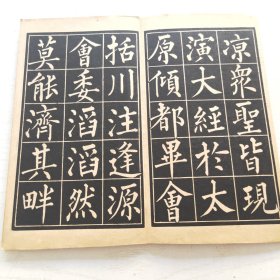 涼眾聖皆現
演大經於太
原傾都畢會
括川注逢源
會委滔滔然
莫能濟其畔